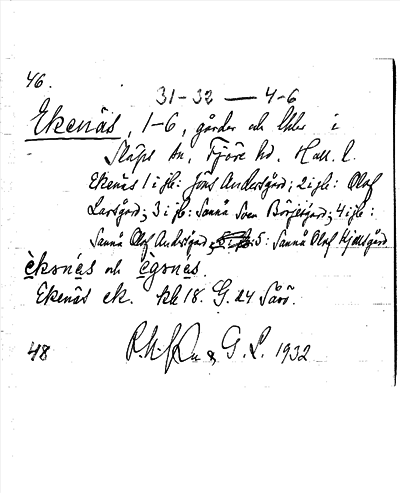 46.
31-32 — 4-6
Ekenäs, 1-6, gårdar och lht i
Släps sn, Fjäre hd. Hall. l.
Ekenäs 1 i jb: Jöns Andersgård; 2 i jb: Olof
Larsgård; 3 i jb: Sunnå Sven Börjesgård; 4 i jb:
Sunnå Olof Andersgård; 5: Sunnå Olof Kjellsgård
èksnés och ègsnés.
Ekenäs ek. kbl 18. G. 24 Särö.
48 & G. L. 1932